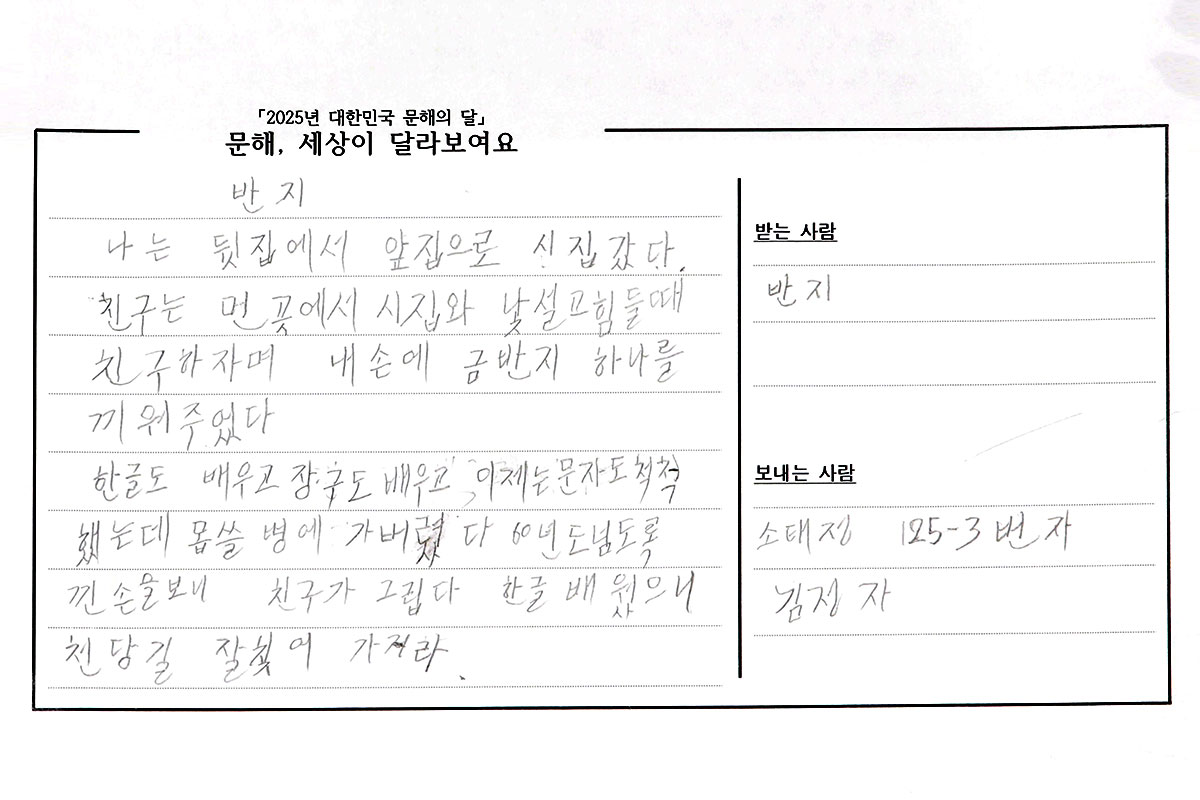 「2025년 대한민국 문해의 달」
문해, 세상이 달라보여요
반지
나는 뒷집에서 앞집으로 시집갔다.
친구는 먼 곳에서 시집와 낯설고힘들때
친구하자며 내손에 금반지 하나를
끼워주었다
한글도 배우고 장구도 배우고 이제는문자도척척
했는데 몹쓸 병에 가버렸다 60년도넘도록
낀손을보니 친구가 그립다 한글배웠으니
천당길 잘찾여 가거라.
받는 사람
반지
보내는 사람
소태정 125-3번자
김정자